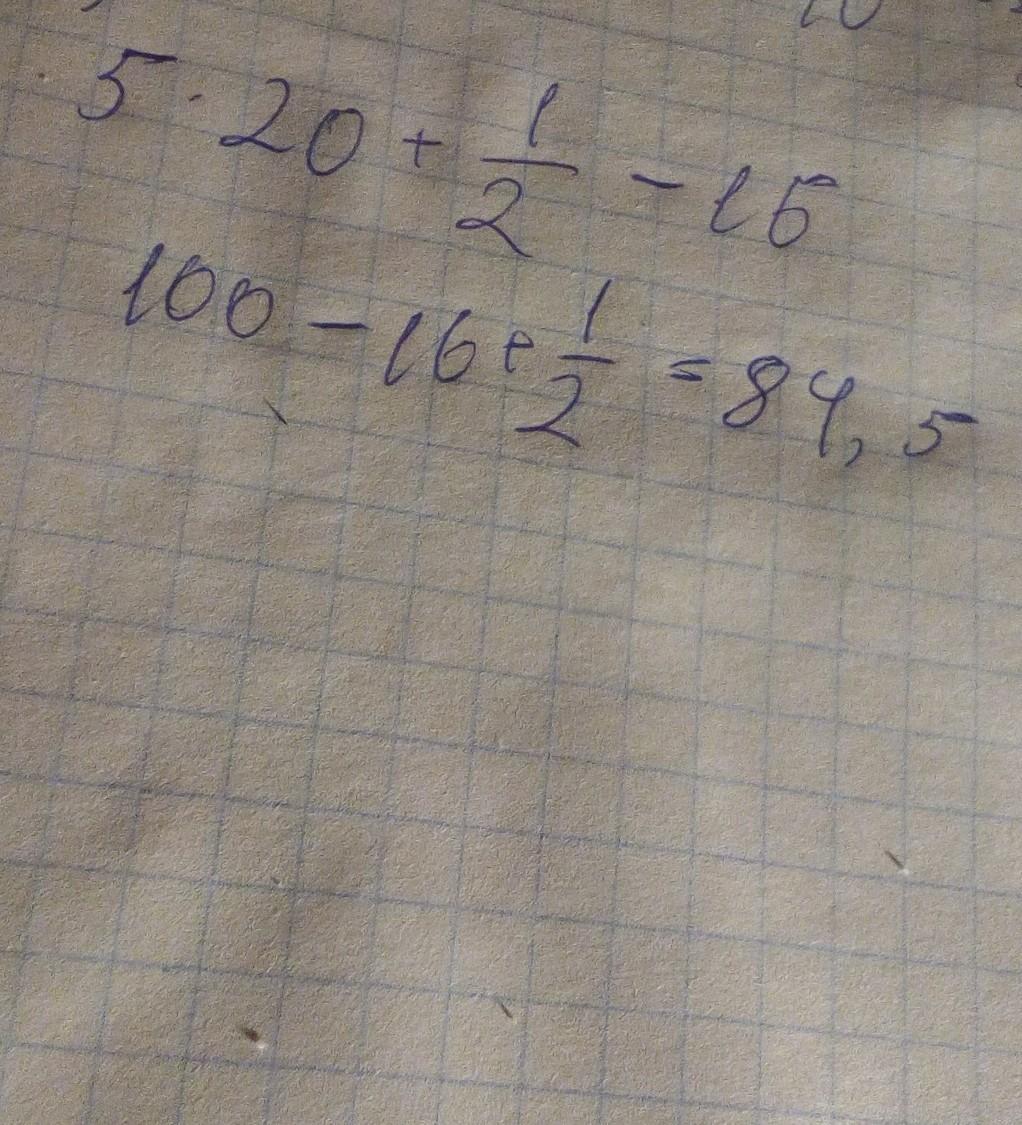 5 · 20 + 1/2 - 15
100 - 16 + 1/2 = 84,5